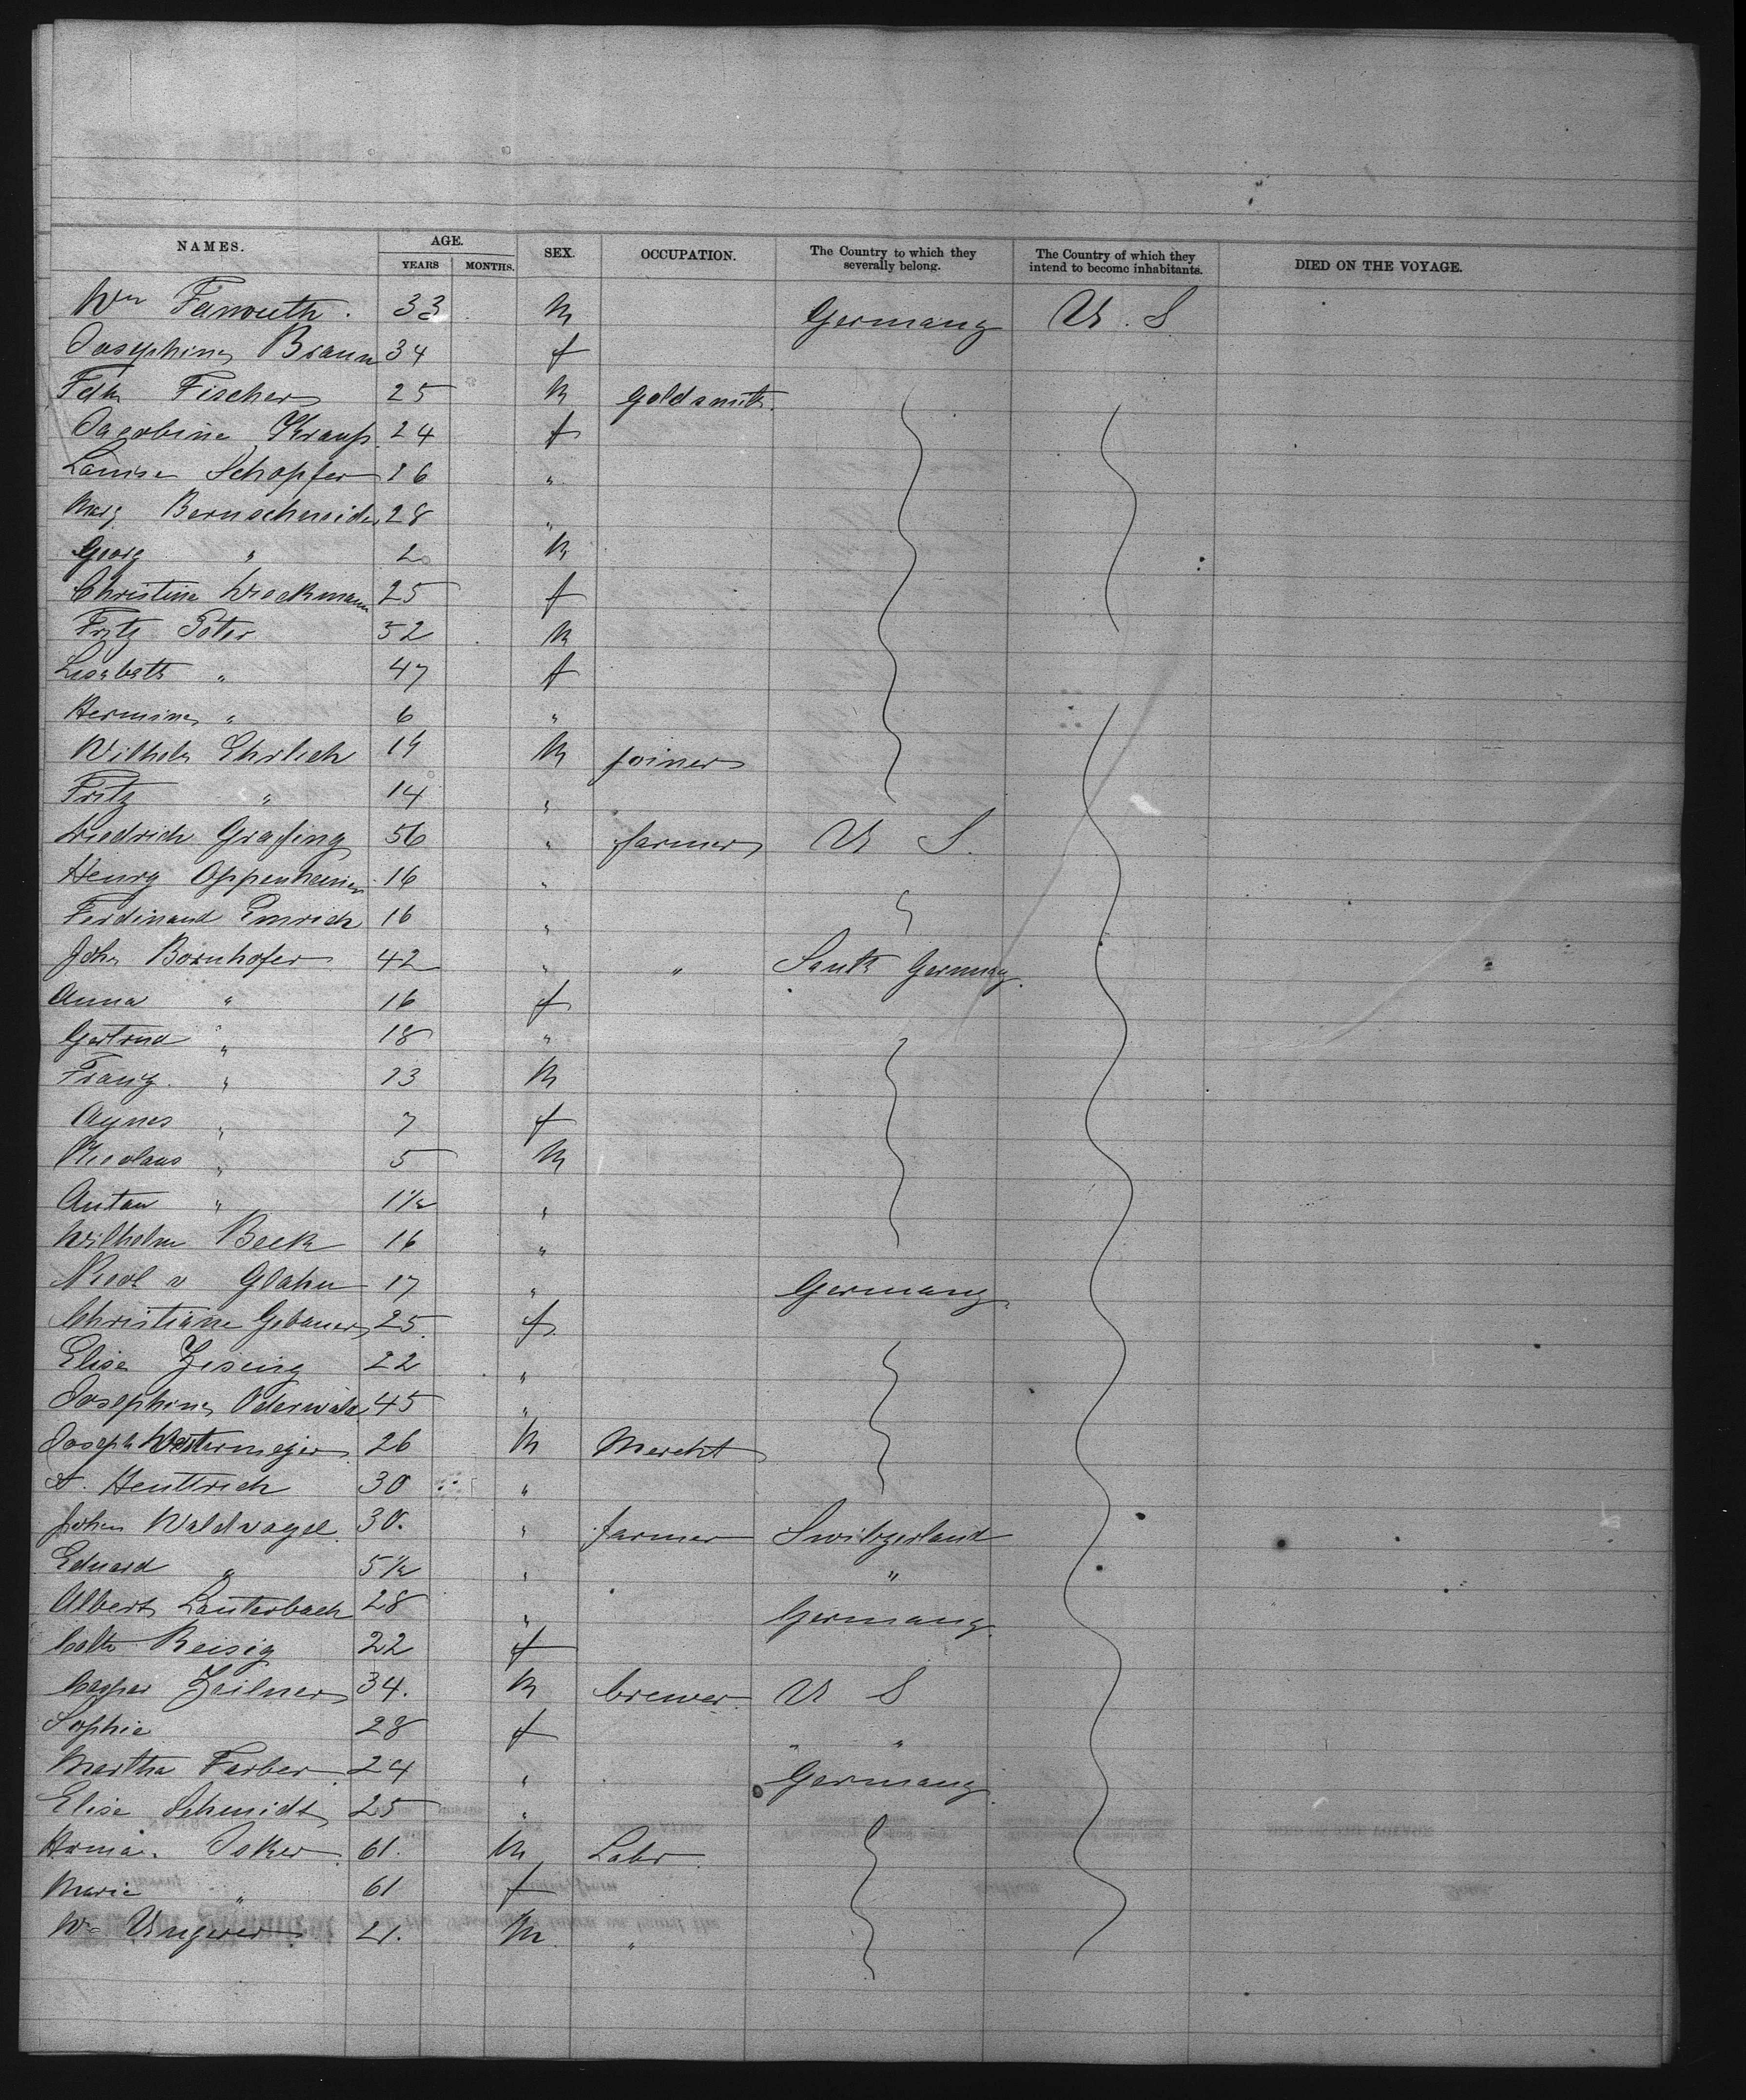 NAMES. AGE. SEX. OCCUPATION. The Country to which they severally belong. The Country of which they intend to become inhabitants. DIED ON THE VOYAGE.
YEARS MONTHS.
Wm 33 M Germany U. S
Josephine Braun 34 f
Fdk Fischer 25 M goldsmith
Jacobine Krauss 24 f
Louise Schopfer 16 "
Marg Bernschneider 28 "
Georg " 2 M
Christine Dieckmann 25 f
Fritz Peter 52 M
Lisabeth " 47 f
Hermine " 6 "
Wilhelm Ehrlich 19 M joiner
Fritz " 14 "
Diedrich Grafing 56 " farmer U S.
Henry Oppenheimer 16 "
Ferdinand Emrich 16 "
John Bornhofer 42 " " South Germany
Anna " 16 f
Gertrud " 18 "
Franz " 13 M
Agnes " 7 f
Nicolaus " 5 M
Anton " 1½ "
Wilhelm Beck 16 "
Nicol v Glahn 17 " Germany
Christiane Gebauer 25. f
Elise Zising 22 "
Josephine Oderwald 45 "
Joseph Westermejer 26 M Mercht
A. Henttrich 30 "
John Waldvogel 30. " farmer Switzerland
Eduard " 5½ " "
Albert Lauterbach 28 " Germany.
Cath Reisig 22 f
Caspar Zeilner 34. M brewer U S
Sophie 28 f " "
Martha Farber 24 " Germany
Elise Schmidt 25 "
61. M Labr
Marie " 61 f
Wm Ungerer 21. M "